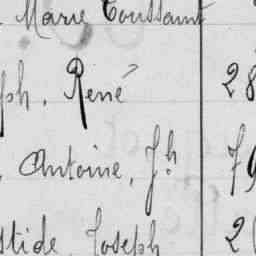 Marie Toussaint
ph, René 28
, Antoine, Jh 79
stide, Joseph 20